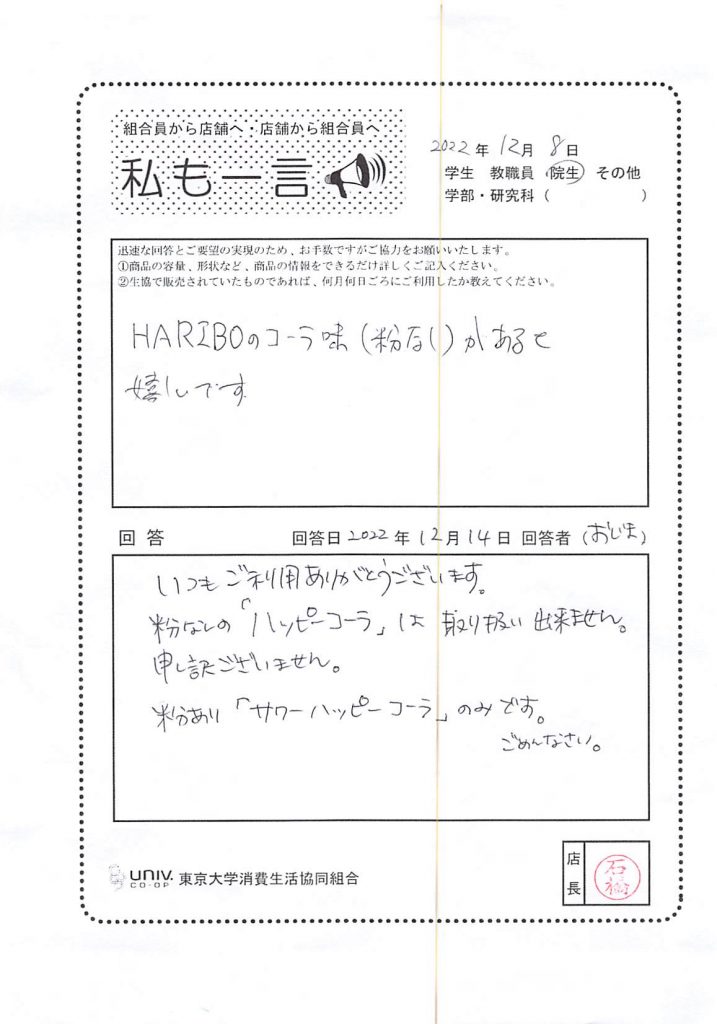 組合員から店舗へ・店舗から組合員へ
私も一言
2022年 12月 8日
学生 教職員 院生 その他
学部・研究科( )
迅速な回答とご要望の実現のため、お手数ですがご協力をお願いいたします。
①商品の容量、形状など、商品の情報をできるだけ詳しくご記入ください。
②生協で販売されていたものであれば、何月何日ごろにご利用したか教えてください。
HARIBOのコーラ味(粉なし)があると
嬉しいです
回答 回答日 2022 年 12月 14日 回答者 (おじま)
いつもご利用ありがとうございます。
粉なしの「ハッピーコーラ」は 取り扱い出来ません。
申し訳ございません。
粉あり「サワーハッピーコーラ」のみです。
ごめんなさい。
UNIV. CO-OP 東京大学消費生活協同組合
店長